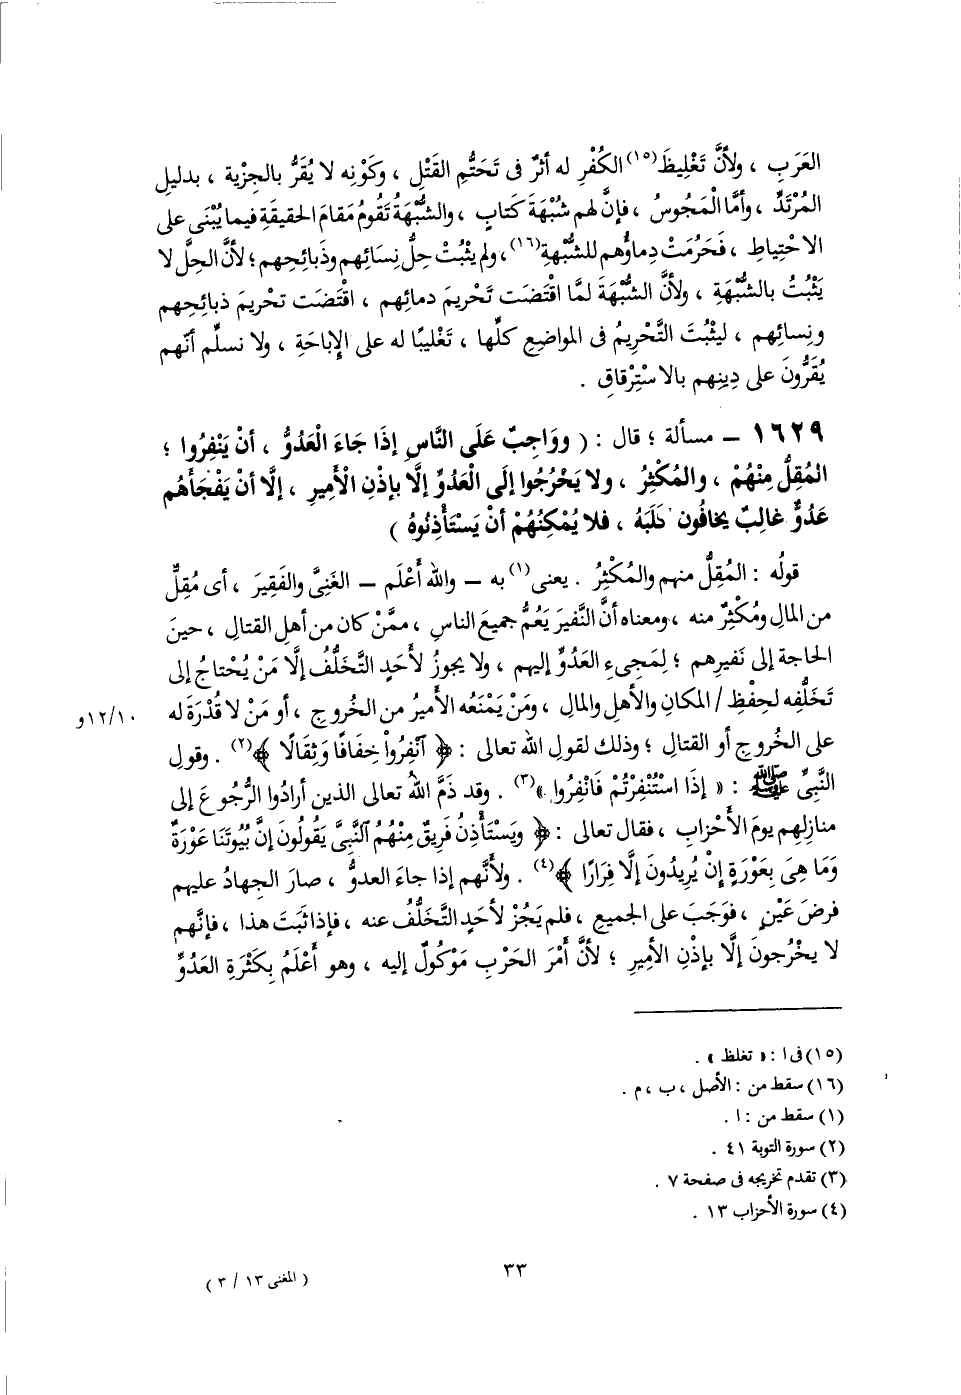 العَرَبِ ، ولأنَّ تَغْلِيظَ(١٥) الكُفْرِ له أثرٌ فى تَحَتُّمِ القَتْلِ ، وكَوْنِه لا يُقَرُّ بالجِزْية ، بدليلِ
المُرْتَدِّ ، وأمَّا الْمَجُوسُ ، فإنَّ لهم شُبْهَةَ كتابٍ ، والشُّبْهَةُ تَقُومُ مَقامَ الحقيقةِ فيما يُبْنَى على
الاحْتِياطِ ، فَحَرُمَتْ دِماؤُهم للشُّبْهةِ(١٦) ، ولم يَثْبُتْ حِلُّ نِسائِهم وذَبائِحِهم ؛ لأنَّ الحِلَّ لا
يَثْبُتُ بالشُّبْهَةِ ، ولأنَّ الشُّبْهَةَ لمَّا اقْتَضَت تَحْريمَ دمائِهم ، اقْتَضَت تحْريمَ ذبائِحِهم
ونِسائِهم ، ليثْبُتَ التَّحْرِيمُ فى المواضِعِ كلِّها ، تَغْليبًا له على الإباحَةِ ، ولا نسلِّم أنّهم
يُقَرُّونَ على دِينِهم بالاسْتِرْقاقِ .
١٦٢٩ – مسألة ؛ قال : ( ووَاجِبٌ عَلَى النَّاسِ إذَا جَاءَ الْعَدُوُّ ، أنْ يَنْفِرُوا ؛
المُقِلُّ مِنْهُمْ ، والمُكْثِرُ ، ولا يَخْرُجُوا إلَى الْعَدُوِّ إلَّا بإذْنِ الْأَمِيرِ ، إلَّا أنْ يَفْجَأَهُم
عَدُوٌّ غالِبٌ يخافُون كَلَبَهُ ، فلا يُمْكِنُهُمْ أنْ يَسْتَأْذِنُوهُ )
قولُه : المُقِلُّ منهم والمُكْثِرُ . يعنى(١) به – والله أَعْلَم – الغَنِىَّ والفَقِيرَ ، أى مُقِلٌّ
من المالِ ومُكْثِرٌ منه ، ومعناه أنَّ النَّفيرَ يَعُمُّ جميعَ الناسِ ، ممَّنْ كان من أهلِ القتالِ ، حينَ
الحاجة إلى نَفيرِهم ؛ لِمَجِىءِ العَدُوِّ إليهم ، ولا يجوزُ لأَحَدٍ التَّخَلُّفُ إلَّا مَنْ يُحْتاجُ إلى
تَخَلُّفِه لحِفْظِ / المكانِ والأهلِ والمالِ ، ومَنْ يَمْنَعُه الأميرُ من الخُروجِ ، أو مَنْ لا قُدْرَةَ له
١٢/١٠و
على الخُروجِ أو القتالِ ؛ وذلك لقولِ الله تعالى : ﴿ ٱنْفِرُواْ خِفَافًا وَثِقَالًا ﴾(٢) . وقولِ
النَّبِىِّ ﷺ : « إذَا اسْتُنْفِرْتُمْ فَانْفِرُوا »(٣) . وقد ذَمَّ اللهُ تعالى الذين أرادُوا الرُّجُوعَ إلى
منازِلِهم يومَ الأَحْزابِ ، فقال تعالى : ﴿ وَيَسْتَأْذِنُ فَرِيقٌ مِنْهُمُ ٱلنَّبِىَّ يَقُولُونَ إِنَّ بُيُوتَنَا عَوْرَةٌ
وَمَا هِىَ بِعَوْرَةٍ إِنْ يُرِيدُونَ إِلَّا فِرَارًا ﴾(٤) . ولأنَّهم إذا جاءَ العدوُّ ، صارَ الجِهادُ عليهم
فرضَ عَيْنٍ ، فوَجَبَ على الجميعِ ، فلم يَجُزْ لأحَدٍ التَّخَلُّفُ عنه ، فإذا ثَبَتَ هذا ، فإنَّهم
لا يخْرُجونَ إلَّا بإذْنِ الأمِيرِ ؛ لأنَّ أمْرَ الحَرْبِ مَوْكُولٌ إليه ، وهو أَعْلَمُ بِكَثْرَةِ العَدُوِّ
(١٥) فى ا : « تغلظ » .
(١٦) سقط من : الأصل ، ب ، م .
(١) سقط من : ا .
(٢) سورة التوبة ٤١ .
(٣) تقدم تخريجه فى صفحة ٧ .
(٤) سورة الأحزاب ١٣ .
٣٣
( المغنى ١٣ / ٣ )